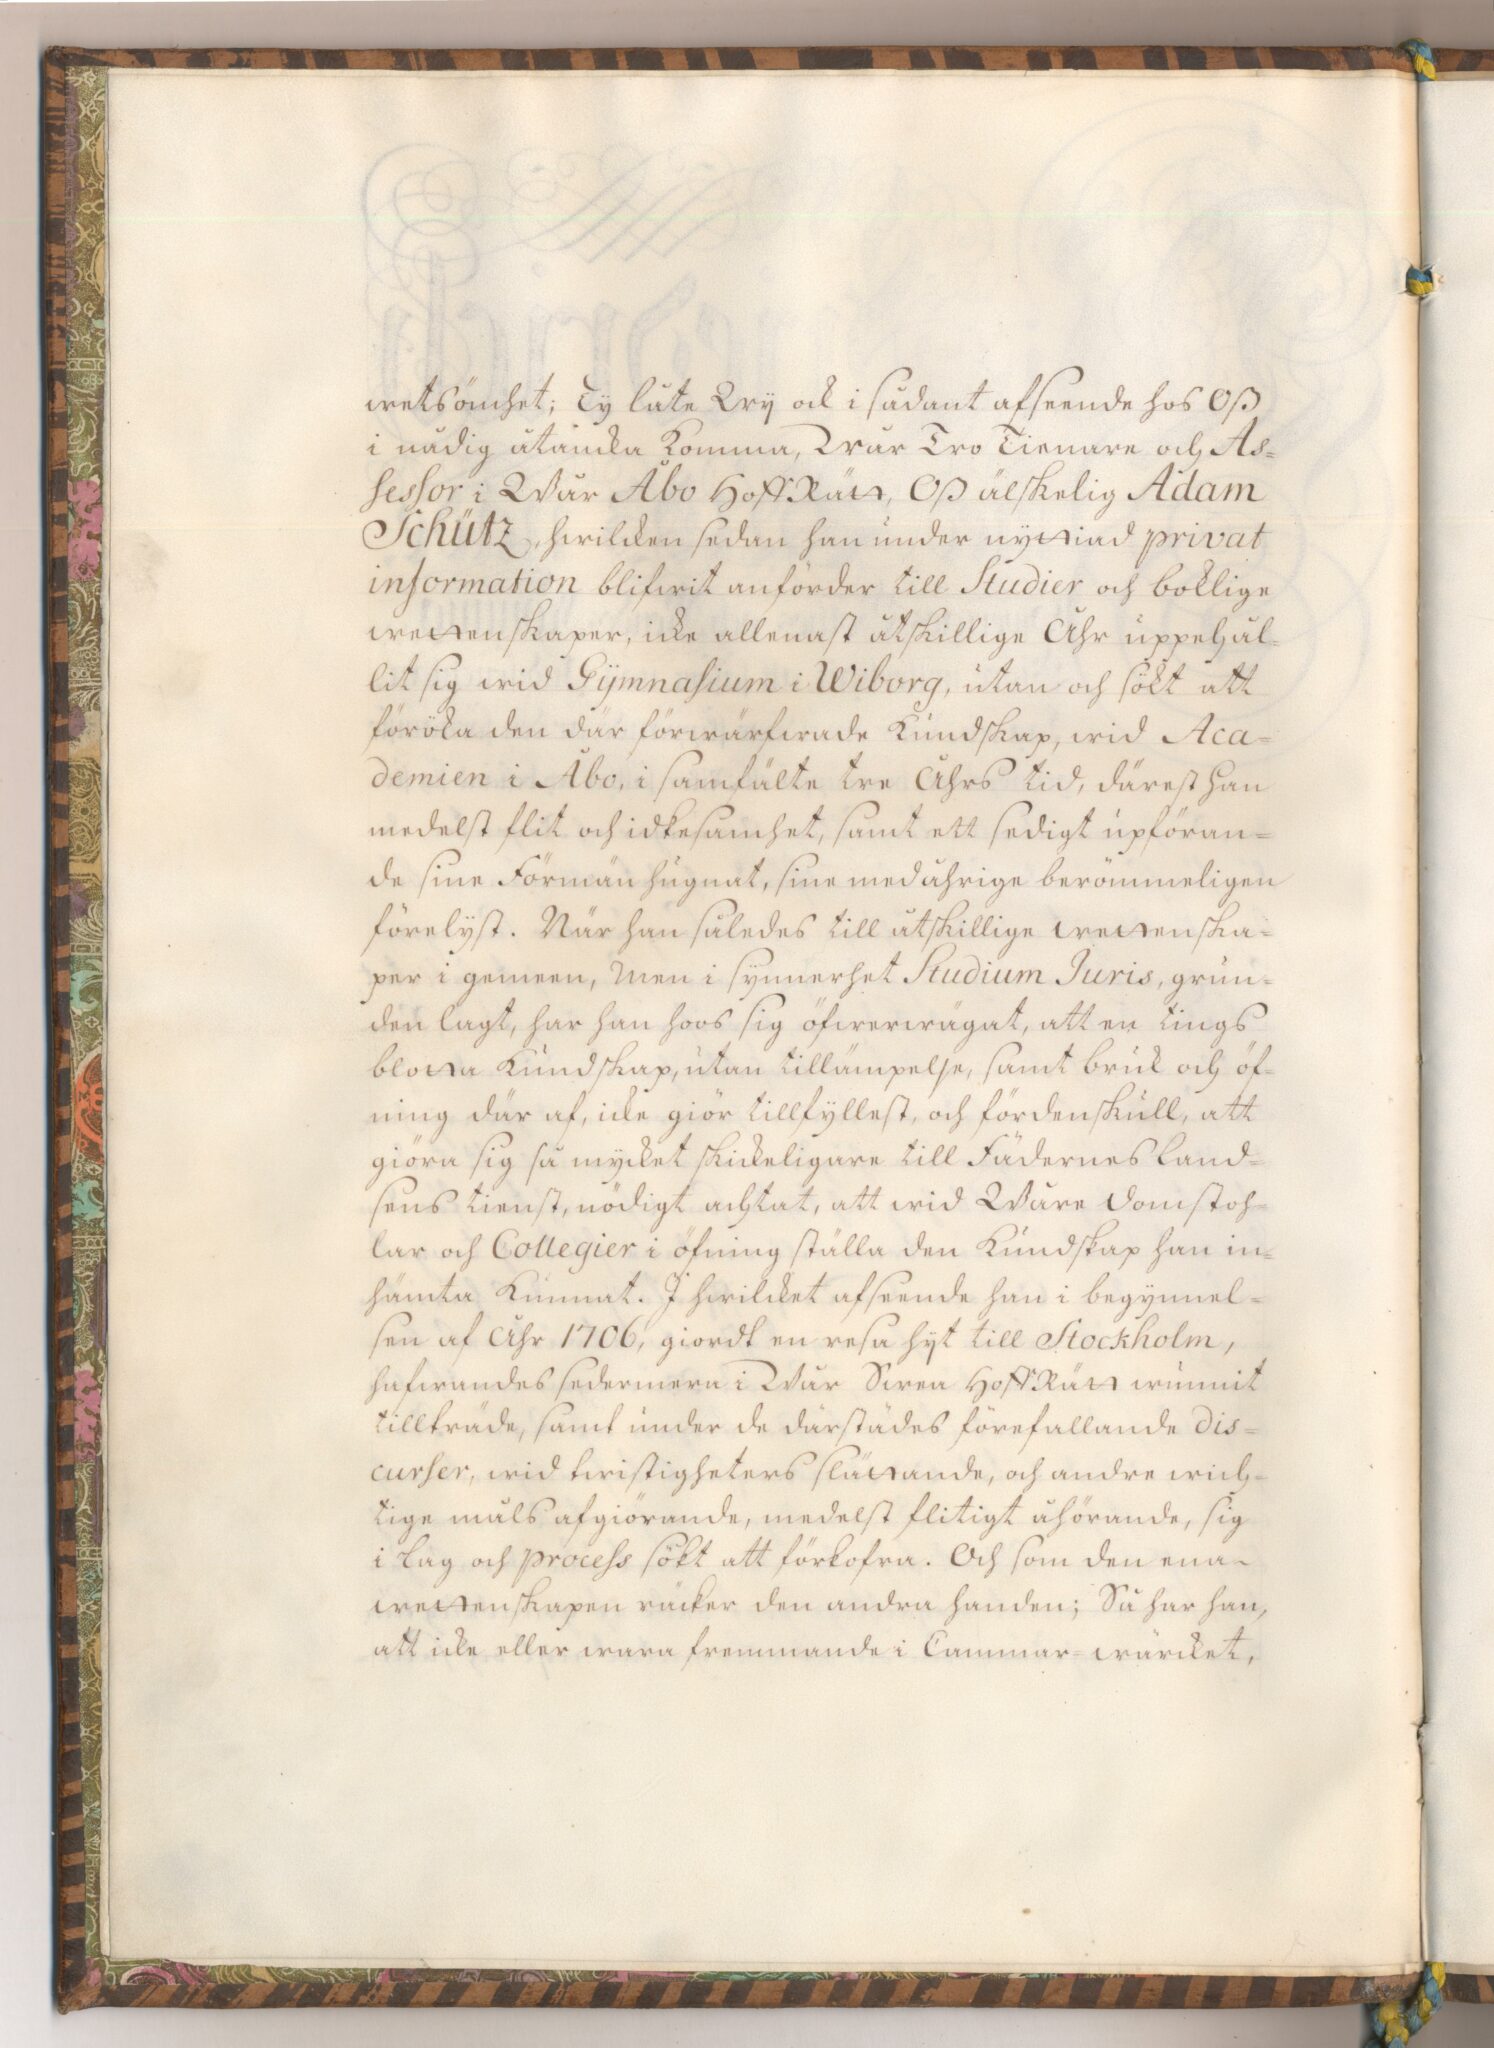 wetsömhet; Ty låte Wy ock i sådant afseende hos Oß
i nådig åtancka komma, Wår Tro Tienare och As-
sessor i Wår Åbo HoffRätt, Oß älskelig Adam
Schütz, hwilcken sedan han under nyttiad privat
information blifwit anförder till Studier och boklige
wettenskaper, icke allenast åtskillige Åhr uppehål-
lit sig wid Gymnasium i Wiborg, utan och sökt att
föröka den där förwärfwade Kundskap, wid Aca-
demien i Åbo, i samfälte tre Åhrs tid, därest han
medelst flit och idkesamhet, samt ett sedigt upföran-
de sine Förmän hugnat, sine medåhrige berömmeligen
förelyst. När han således till åtskillige wettenska-
per i gemeen, Men i synnerhet Studium Juris, grun-
den lagt, har han hoos sig öfwerwägat, att en tings
blotta Kundskap, utan tillämpelse, samt bruk och öf-
ning där af, icke giör tillfyllest, och fördenskull, att
giöra sig så mycket skickeligare till Fädernes Land-
sens tienst, nödigt achtat, att wid Wåre Domstoh-
lar och Collegier i öfning ställa den Kundskap han in-
hämta Kunnat. I hwilcket afseende han i begynnel-
sen af Åhr 1706, giordt en resa hyt till Stockholm,
hafwandes sedermera i Wår Swea HoffRätt wunnit
tillträde, samt under de därstädes förefallande dis-
curser, wid twistigheters slättande, och andre wich-
tige måls afgiörande, medelst flitigt åhörande, sig
i Lag och process sökt att förkofra. Och som den ena
wettenskapen räcker den andra handen; Så har han,
att icke eller wara fremmande i Cammar-wärcket,